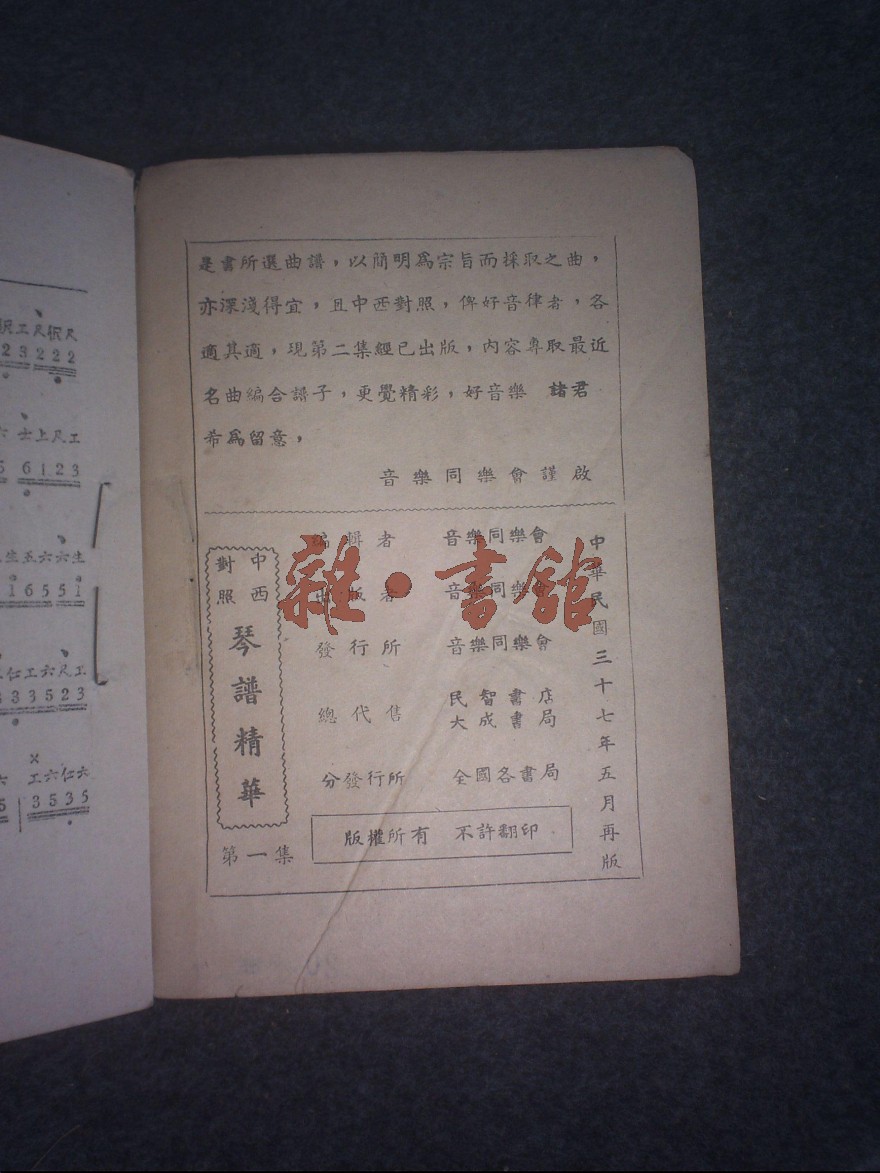 尺工尺㭠尺
23222
士上尺工
6123
生五六六生
16551
仁工六尺工
33523
工六仁六
3535
是書所選曲譜，以簡明為宗旨而採取之曲，
亦深淺得宜，且中西對照，俾好音律者，各
適其適，現第二集經已出版，內容專取最近
名曲編合譜子，更覺精彩，好音樂　諸君
希為留意，
音樂同樂會謹啟
中西對照
琴譜精華
第一集
編輯者　音樂同樂會
出版者　音樂同樂會
發行所　音樂同樂會
總代售　民智書店
大成書局
分發行所　全國各書局
版權所有　不許翻印
中華民國三十七年五月再版
雜·書館